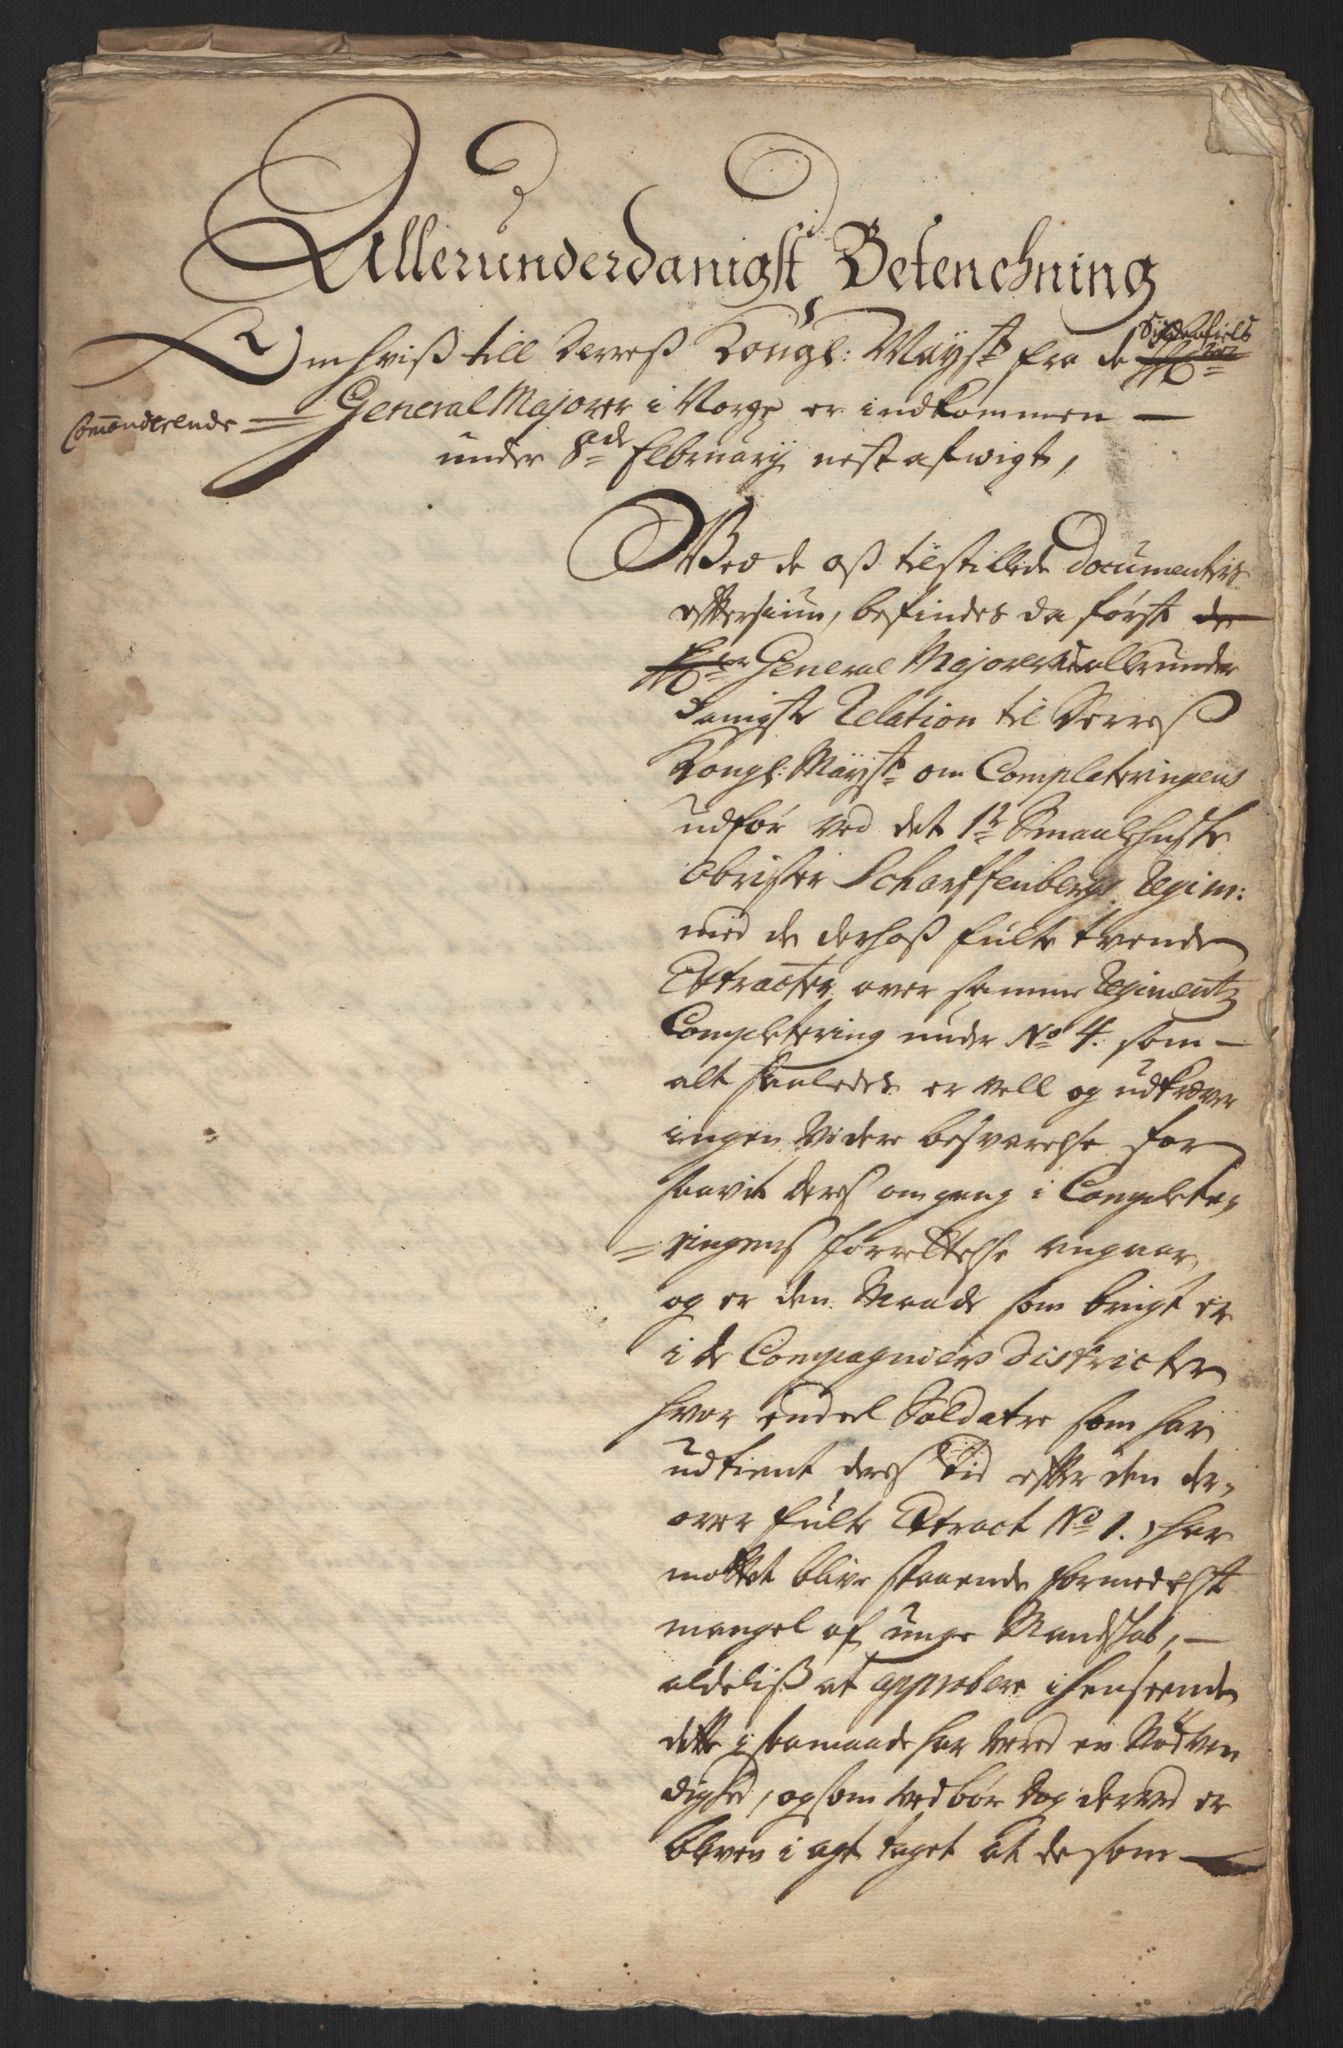 Allerunderdanigst Betenchning
Om hviß till Deres Kongl: Mayst: fra de
Comanderende
General Majorer i Norge er indkommen
under 8de Februarij nest afwigt,
Ved de oß tilstillede Documenters
eftersiun, befindes da først de
Hrr General Majorers allerunder
danigste Relation til Deres
Kongl: Mayst: om Completeringens
udfør ved det 1te Smaalehnske
Obrister Scharffenbergs Regim:
med de derhoß fulte tvende
Extracter over samme Regimentz
Completering under No 4. som
alt saaledes er vell og udkræver
ingen Videre besvarelse for
saavit deres omgang i Complete,
ringens forrettelse angaar,
og er den Maade som brugt er
i de Compagniers Districter
hvor endeel Soldater som har
udtient deres Tid efter den der,
over fulte Extract No 1., har
mottet blive staaende formedelst
mangel af unge Mandskab,
aldeliß at approbere i henseende
dette i saamaade har vered en Nødven
dighed, og som ved bør dog derved er
bleven i agt taget at de som